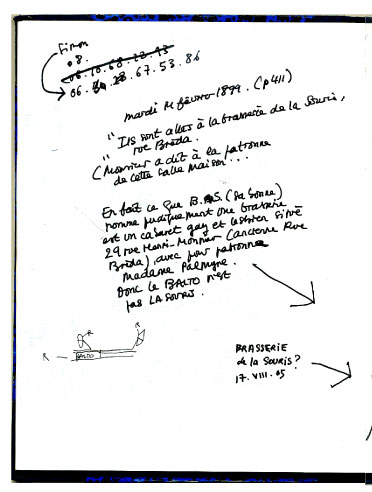 Simon
08.
06.10.68.22.93
06. 28.67.53.86
mardi 14 février 1899. (p411)
"Ils sont allés à la brasserie de la Souris,
rue Bréda.
(Monsieur a dit à la patronne
de cette sale maison...
En fait ce que B. S. (sa bonne)
nomme pudiquement une brasserie
est un cabaret gay et lesbien situé
29 rue Henri-Monnier (ancienne Rue
Bréda), avec pour patronne
Madame Palmyre.
Donc le BALTO n'est
pas LA SOURIS.
R
R
R
BALTO
BRASSERIE
de la SOURIS?
17.VIII.05